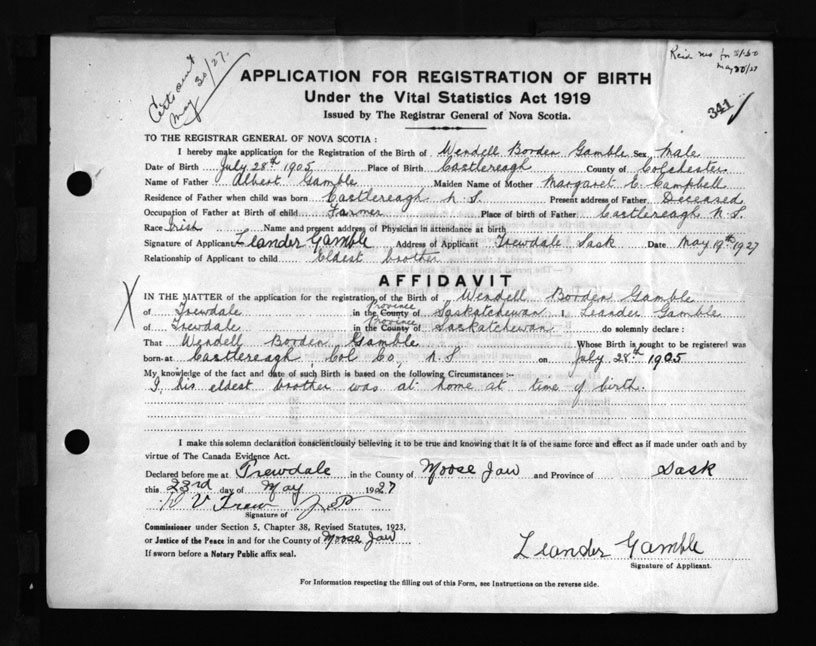 Cert sent
May 30/27.
May 30/27
341
APPLICATION FOR REGISTRATION OF BIRTH
Under the Vital Statistics Act 1919
Issued by The Registrar General of Nova Scotia.
TO THE REGISTRAR GENERAL OF NOVA SCOTIA :
I hereby make application for the Registration of the Birth of Wendell Borden Gamble Sex Male
Date of Birth July 28th 1905 Place of Birth Castlereagh County of Colchester
Name of Father Albert Gamble Maiden Name of Mother Margaret E. Campbell
Residence of Father when child was born Castlereagh N S. Present address of Father Deceased
Occupation of Father at Birth of child Farmer Place of birth of Father Castlereagh N. S.
Race Irish Name and present address of Physician in attendance at birth
Signature of Applicant Leander Gamble Address of Applicant Trewdale Sask Date May 19th 1927
Relationship of Applicant to child Eldest brother
AFFIDAVIT
X
IN THE MATTER of the application for the registration of the Birth of Wendell Borden Gamble
of Trewdale in the County of Province Saskatchewan I, Leander Gamble
of Trewdale in the County of Province Saskatchewan do solemnly declare :
That Wendell Borden Gamble Whose Birth is sought to be registered was
born at Castlereagh, Col Co, N. S on July 28th 1905
My knowledge of the fact and date of such Birth is based on the following Circumstances :-
I, his eldest brother was at home at time of birth.
I make this solemn declaration conscientiously believing it to be true and knowing that it is of the same force and effect as if made under oath and by
virtue of The Canada Evidence Act.
Declared before me at Trewdale in the County of Moose Jaw and Province of Sask
this 23rd day of May 1927
Signature of
Commissioner under Section 5, Chapter 38, Revised Statutes, 1923,
or Justice of the Peace in and for the County of Moose Jaw
If sworn before a Notary Public affix seal.
Leander Gamble
Signature of Applicant.
For Information respecting the filling out of this Form, see Instructions on the reverse side.